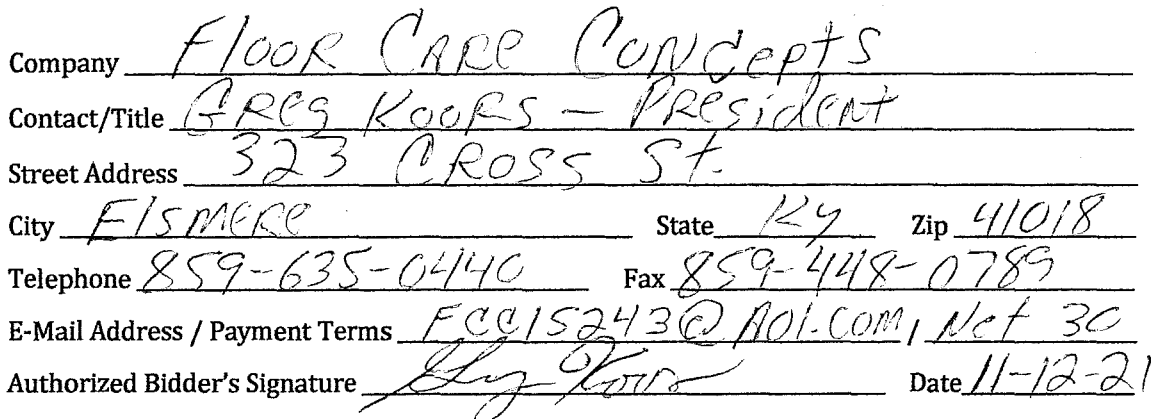 Company Floor Care Concepts
Contact/Title Greg Koors – President
Street Address 323 Cross St.
City Elsmere State Ky Zip 41018
Telephone 859-635-0440 Fax 859-448-0789
E-Mail Address / Payment Terms FCC15243@Aol.com, Net 30
Authorized Bidder's Signature Greg Koors Date 11-12-21